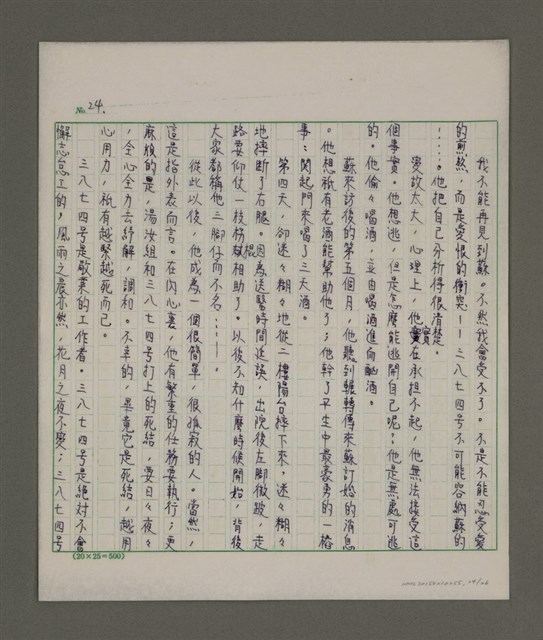 No. 24.
我不能再見到蘇。不然我會受不了。不是不能忍受愛
的煎熬，而是愛恨的衝突——三八七四号不可能容納蘇的
……。他把自己分析得很清楚。
變故太大，心理上，他實在承担不起，他無法接受這
個事實。他想逃，但是怎麼能逃開自己呢？他是無處可逃
的。他偷々喝酒，並由喝酒進而酗酒。
蘇來訪後的第五個月，他聽到輾轉傳來蘇訂婚的消息
。他想祇有老酒能幫助他了；他幹了平生中最豪勇的一樁
事：関起門來喝了三天酒。
第四天，卻迷々糊々地從二樓陽台摔下來。迷々糊々
地摔断了右腿。因為送醫時間延誤，出院後左脚微跛，走
路要仰仗一枝拐棍相助了。以後不知什麼時候開始，背後
大家都稱他三脚仔而不名……。
從此以後，他成為一個很簡單，很孤寂的人。當然，
這是指外表而言。在內心裏，他有繁重的任務要執行；更
麻煩的是，湯汝組和三八七四号打上的死結，要日々夜々
，全心全力去紓解，調和。不幸的，畢竟它是死結，越用
心用力，祇有越緊越死而已。
三八七四号是敬業的工作者。三八七四号是絕对不會
懈志怠工的，風雨之晨亦然，花月之夜不變；三八七四号
(20×25=500)